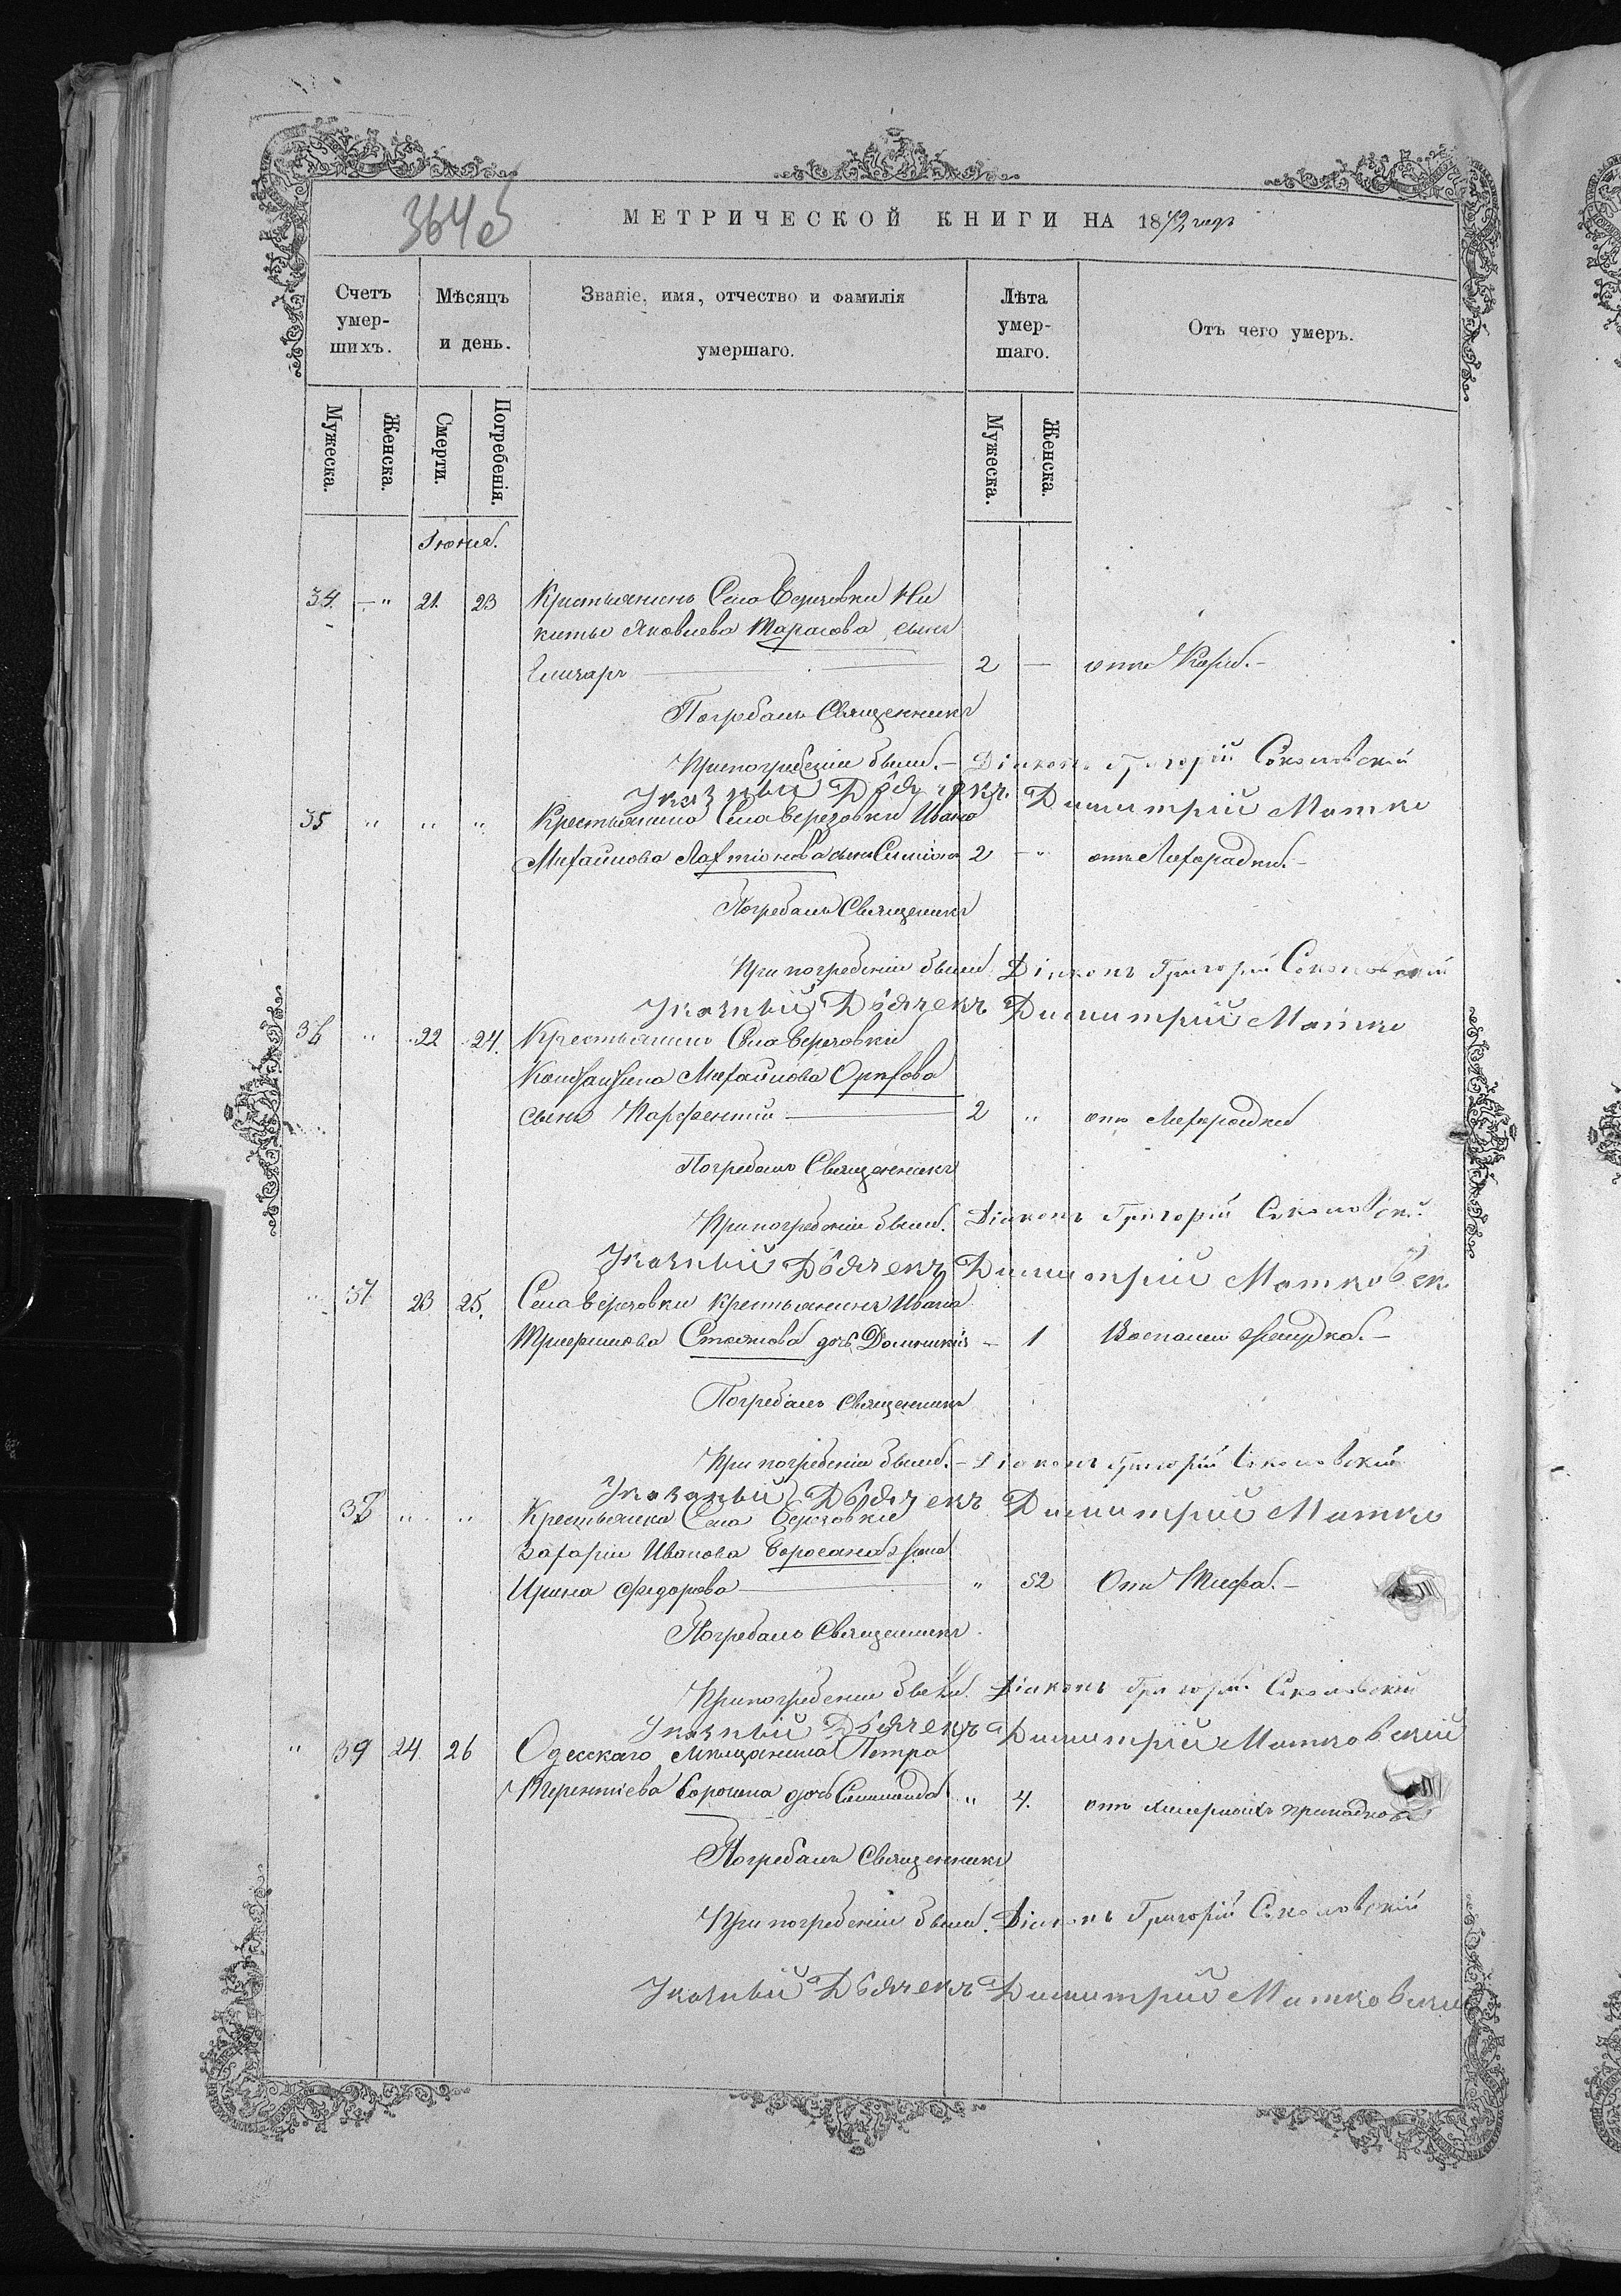 364об
МЕТРИЧЕСКОЙ КНИГИ НА 1873 годъ
Счетъ умер-шихъ. Мѣсяцъ и день. Званіе, имя, отчество и фамилія умершаго. Лѣта умер-шаго. Отъ чего умеръ.
Мужеска. Женска. Смерти. Погребенія. Мужеска. Женска.
Іюня.
34. - " 21. 23 Крестьянинъ Села Березовки Ни
киты Яковлева Тарасова сынъ
2 - отъ Кори.-
Погребалъ Священникъ
При погребеніи были.- Діаконъ Григорій Соколовскій
Указный Дьячекъ Димитрій Матко
35 " " " Крестьянина Села Березовки Ивана
Михайлова сынъ Симеонъ 2 - " отъ Лихорадки.-
Погребалъ Священникъ
При погребеніи были Діаконъ Григорій Соколовскій
Указный Дьячекъ Димитрій Матко
36 " 22 24. Крестьянина Села Березовки
Константина Михайлова
сынъ Парфентій 2 " отъ Лихорадки
Погребалъ Священникъ
При погребеніи были. Діаконъ Григорій Соколовскій
Указный Дьячекъ Димитрій Матковск
" 37 23 25. Села Березовки крестьянина Ивана
Стоянова дочь Домникія - 1 Воспаленія желудка.-
Погребалъ Священникъ
При погребеніи были.- Діаконъ Григорій Соколовскій
Указный Дьячекъ Димитрій Матко
38 " " Крестьянка Села Березовки
Захаріи Иванова жена
Ирина Федорова " 52 Отъ Тифа.-
Погребалъ Священникъ
При погребеніи были. Діаконъ Григорій Соколовскій
Указный Дьячекъ Димитрій Матковскій
" 39 24 26 Одесскаго Мещанина Петра
Терентіева дочь " 4. отъ припадковъ
Погребалъ Священникъ
При погребеніи были. Діаконъ Григорій Соколовскій
Указный Дьячекъ Димитрій Матковскій